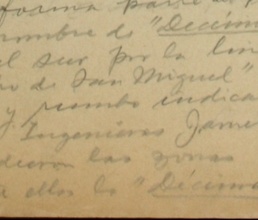 forma parte de
nombre de "Decim
el sur por la lin
de San Miguel"
y rumbo indica
Ingenieros Jame
dieron las zonas
a ellos la "Décima